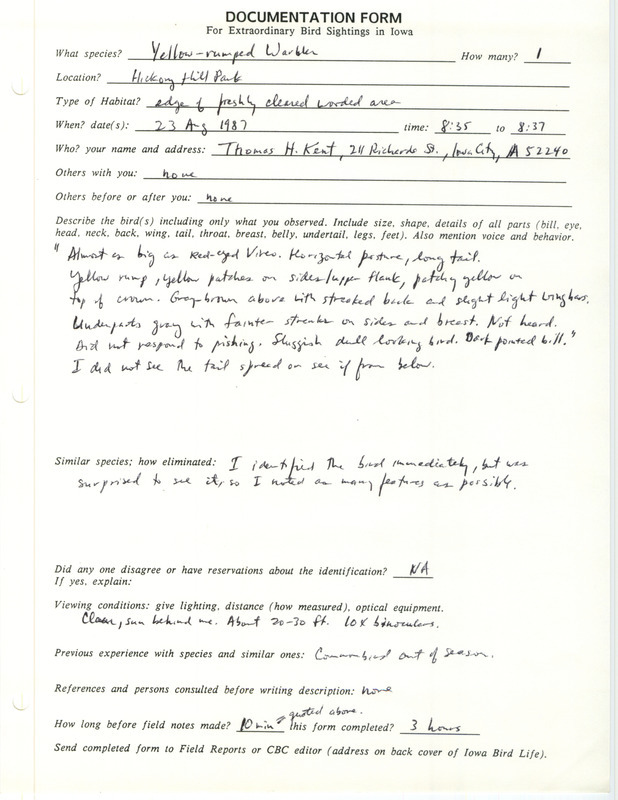 DOCUMENTATION FORM
For Extraordinary Bird Sightings in Iowa
What species? Yellow-rumped Warbler How many? 1
Location? Hickory Hill Park
Type of Habitat? edge of freshly cleared wooded area
When? date(s): 23 Aug 1987 time: 8:35 to 8:37
Who? your name and address: Thomas H. Kent, 211 Richards St., Iowa City, IA 52240
Others with you: none
Others before or after you: none
Describe the bird(s) including only what you observed. Include size, shape, details of all parts (bill, eye,
head, neck, back, wing, tail, throat, breast, belly, undertail, legs, feet). Also mention voice and behavior.
"Almost as big as Red-eyed Vireo. Horizontal posture, long tail.
Yellow rump, yellow patches on sides/upper flank, patchy yellow on
top of crown. Gray-brown above with streaked back and slight light wingbars.
Underparts gray with fainter streaks on sides and breast. Not heard.
Did not respond to pishing. Sluggish dull looking bird. Dark pointed bill."
I did not see the tail spread or see it from below.
Similar species; how eliminated: I identified the bird immediately, but was
surprised to see it, so I noted as many features as possible.
Did any one disagree or have reservations about the identification? NA
If yes, explain:
Viewing conditions: give lighting, distance (how measured), optical equipment.
Clear, sun behind me. About 20-30 ft. 10X binoculars.
Previous experience with species and similar ones: Common bird out of season.
References and persons consulted before writing description: none
quoted above.
How long before field notes made? 10 min this form completed? 3 hours
Send completed form to Field Reports or CBC editor (address on back cover of Iowa Bird Life).